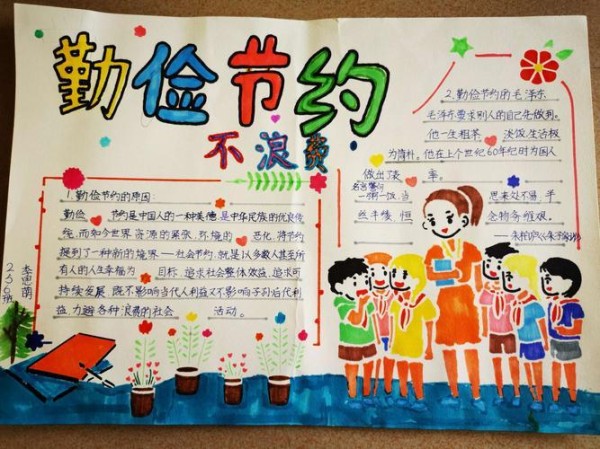 勤俭节约
不浪费
1.勤俭节约的原因:
勤俭 节约是中国人的一种美德,是中华民族的优良传
统,而如今世界资源的紧张,环境的 恶化,将节约
提到了一种新的境界——社会节约,就是以多数人甚至所
有人的人生幸福为 目标,追求社会整体效益,追求可
持续发展,既不影响当代人利益又不影响子孙后代利
益,力避各种浪费的社会 活动。
2.勤俭节约的毛泽东
毛泽东要求别人的自己先做到。
他一生粗茶 淡饭,生活极
为简朴。他在上个世纪60年代时为国人
做出 表 率。
名言警句
一粥一饭,当 思来处不易,半
丝半缕,恒 念物力维艰。
——朱柏庐《朱子家训》
236班